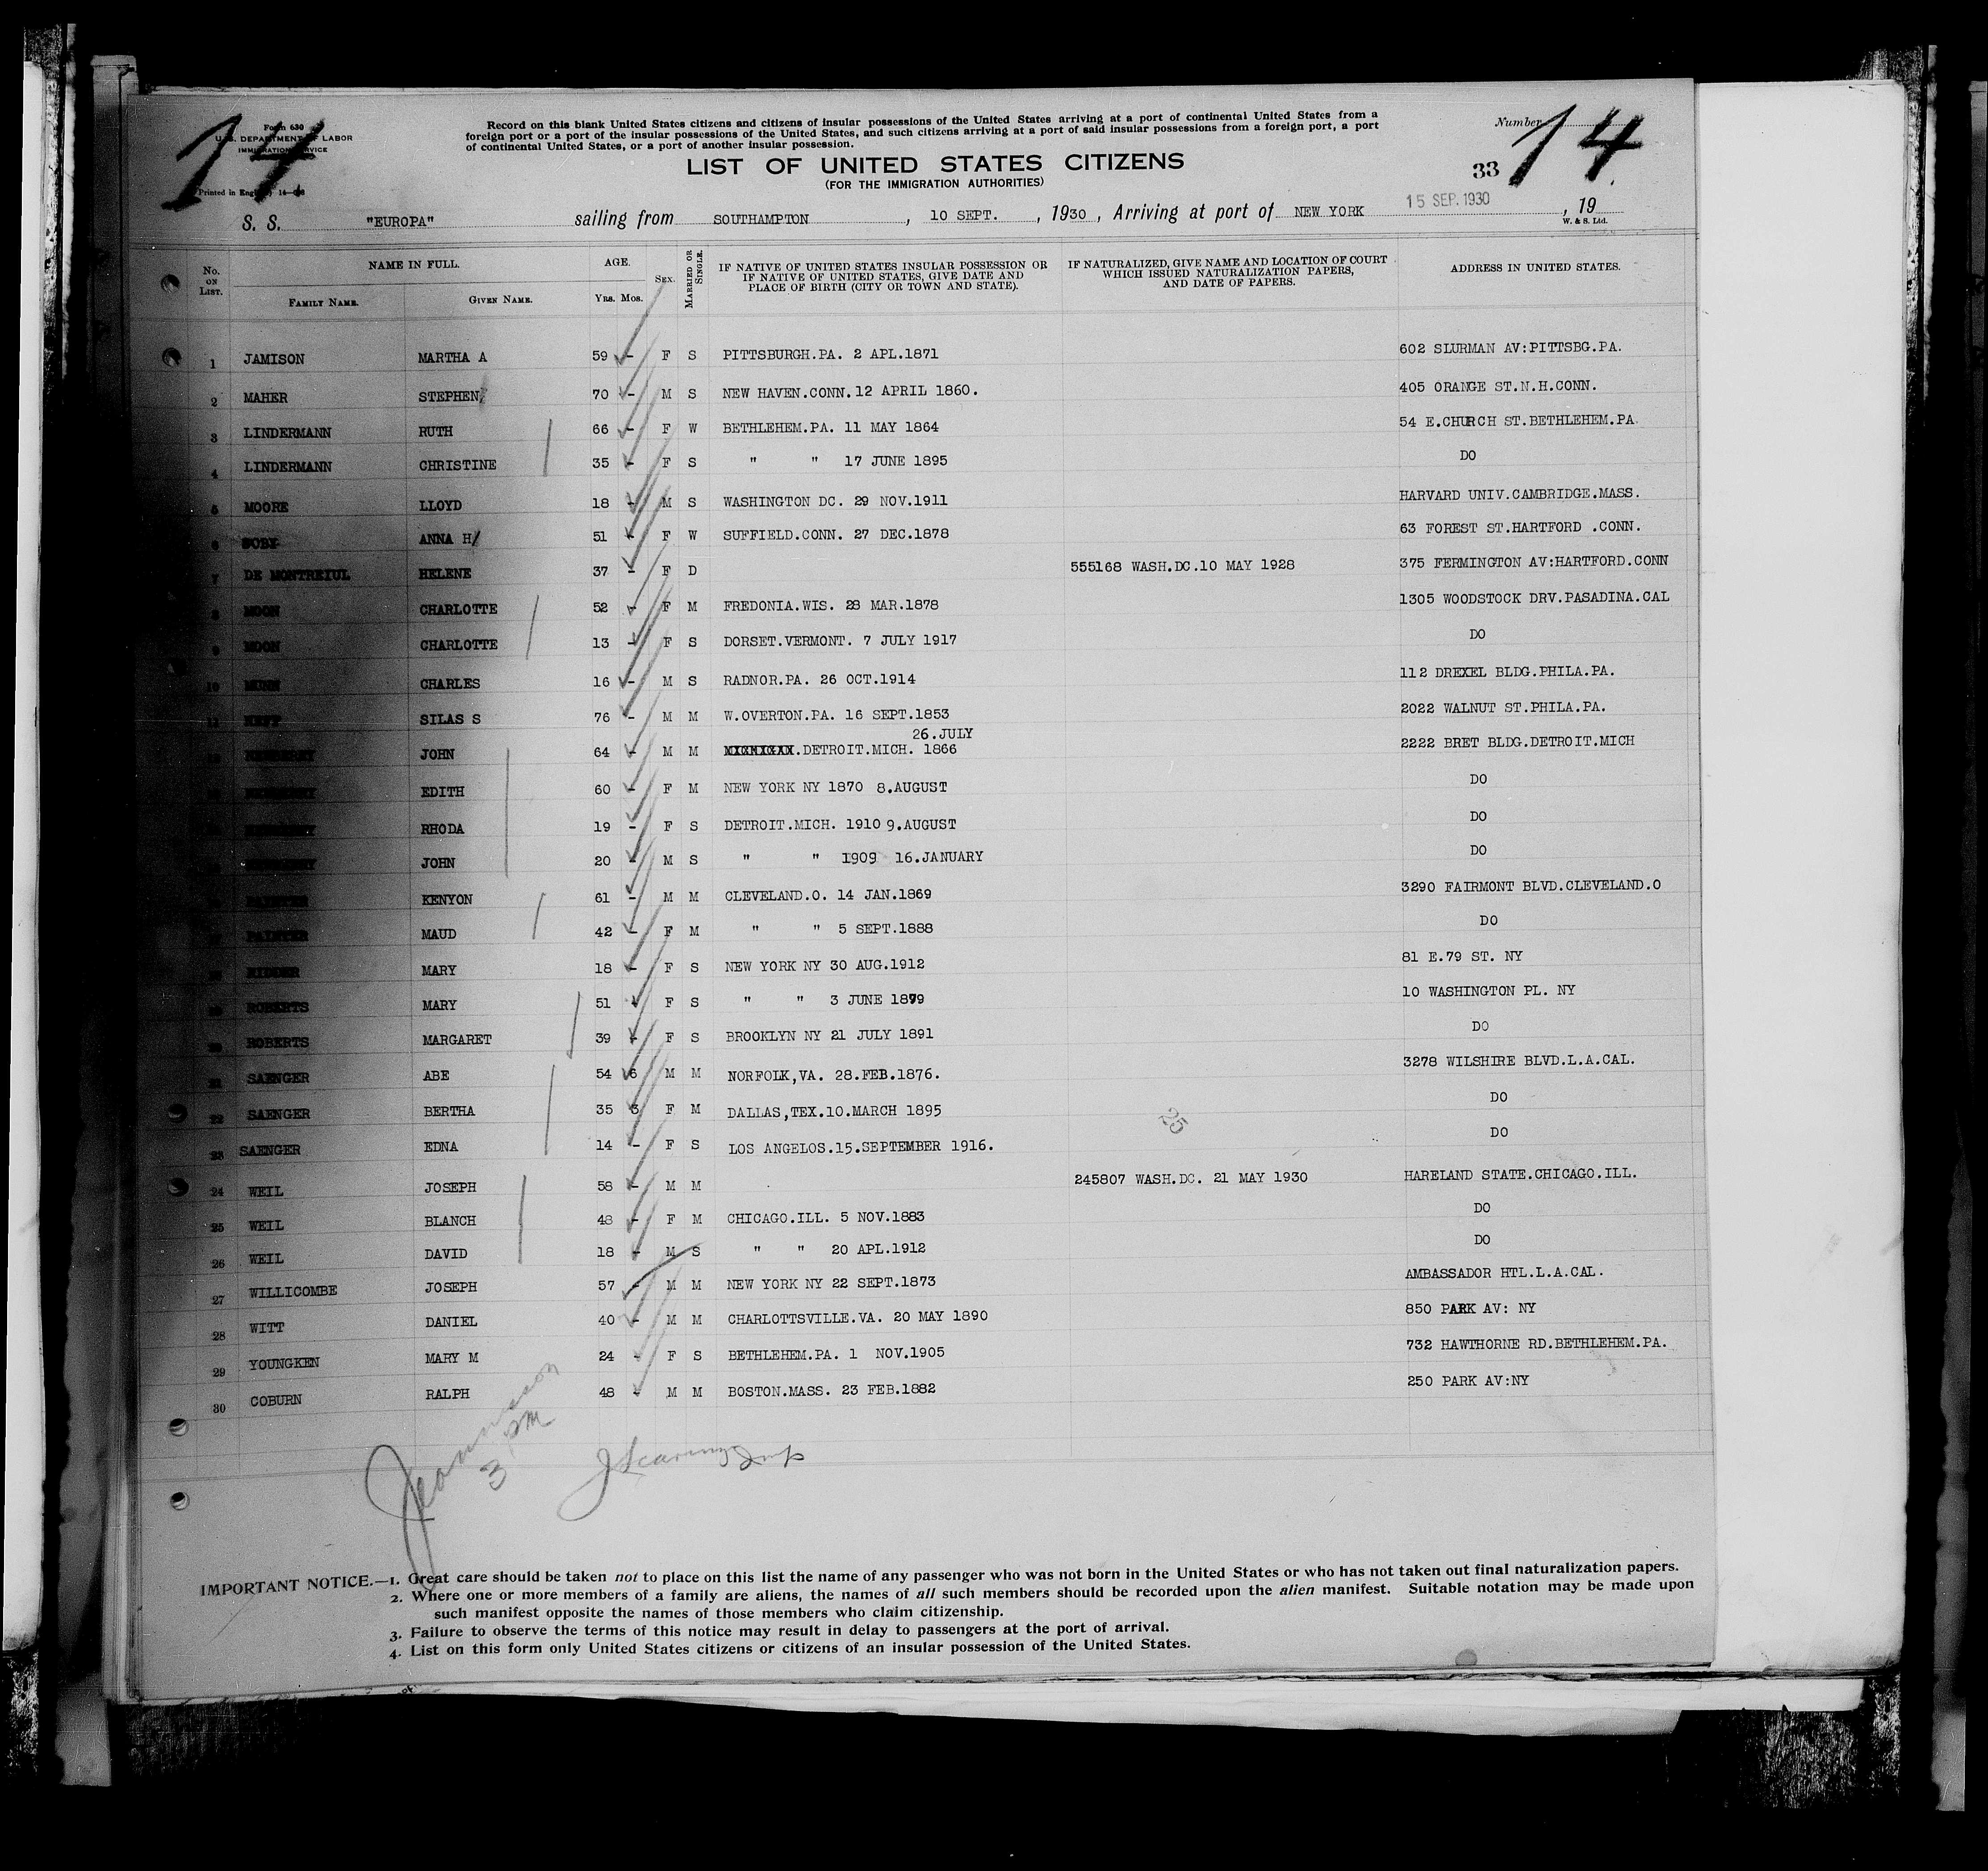 14
Form 630
U.S. DEPARTMENT OF LABOR
IMMIGRATION SERVICE
Printed in England
Record on this blank United States citizens and citizens of insular possessions of the United States arriving at a port of continental United States from a
foreign port or a port of the insular possessions of the United States, and such citizens arriving at a port of said insular possessions from a foreign port, a port
of continental United States, or a port of another insular possession.
Number 14
LIST OF UNITED STATES CITIZENS
(FOR THE IMMIGRATION AUTHORITIES)
33
S. S. "EUROPA" sailing from SOUTHAMPTON, 10 SEPT., 1930, Arriving at port of NEW YORK 15 SEP. 1930, 19
W. & S. Ltd.
No. ON LIST. NAME IN FULL. FAMILY NAME. GIVEN NAME. AGE. YRS. MOS. SEX. MARRIED OR SINGLE. IF NATIVE OF UNITED STATES INSULAR POSSESSION OR IF NATIVE OF UNITED STATES, GIVE DATE AND PLACE OF BIRTH (CITY OR TOWN AND STATE). IF NATURALIZED, GIVE NAME AND LOCATION OF COURT WHICH ISSUED NATURALIZATION PAPERS, AND DATE OF PAPERS. ADDRESS IN UNITED STATES.
1 JAMISON MARTHA A 59 - F S PITTSBURGH.PA. 2 APL.1871 602 SLURMAN AV:PITTSBG.PA.
2 MAHER STEPHEN 70 - M S NEW HAVEN.CONN.12 APRIL 1860. 405 ORANGE ST.N.H.CONN.
3 LINDERMANN RUTH 66 - F W BETHLEHEM.PA. 11 MAY 1864 54 E.CHURCH ST.BETHLEHEM.PA.
4 LINDERMANN CHRISTINE 35 - F S " " 17 JUNE 1895 DO
5 MOORE LLOYD 18 - M S WASHINGTON DC. 29 NOV.1911 HARVARD UNIV.CAMBRIDGE.MASS.
6 SOBY ANNA H 51 - F W SUFFIELD.CONN. 27 DEC.1878 63 FOREST ST.HARTFORD .CONN.
7 DE MONTREIUL HELENE 37 - F D 555168 WASH.DC.10 MAY 1928 375 FERMINGTON AV:HARTFORD.CONN
8 MOON CHARLOTTE 52 - F M FREDONIA.WIS. 28 MAR.1878 1305 WOODSTOCK DRV.PASADINA.CAL
9 MOON CHARLOTTE 13 - F S DORSET.VERMONT. 7 JULY 1917 DO
10 CHARLES 16 - M S RADNOR.PA. 26 OCT.1914 112 DREXEL BLDG.PHILA.PA.
SILAS S 76 - M M W.OVERTON.PA. 16 SEPT.1853 2022 WALNUT ST.PHILA.PA.
26.JULY
JOHN 64 - M M MICHIGAN.DETROIT.MICH. 1866 2222 BRET BLDG.DETROIT.MICH
EDITH 60 - F M NEW YORK NY 1870 8.AUGUST DO
RHODA 19 - F S DETROIT.MICH. 1910 9.AUGUST DO
JOHN 20 - M S " " 1909 16.JANUARY DO
KENYON 61 - M M CLEVELAND.O. 14 JAN.1869 3290 FAIRMONT BLVD.CLEVELAND.O
PAINTER MAUD 42 - F M " " 5 SEPT.1888 DO
KIDDER MARY 18 - F S NEW YORK NY 30 AUG.1912 81 E.79 ST. NY
ROBERTS MARY 51 - F S " " 3 JUNE 1879 10 WASHINGTON PL. NY
20 ROBERTS MARGARET 39 - F S BROOKLYN NY 21 JULY 1891 DO
21 SAENGER ABE 54 6 M M NORFOLK,VA. 28.FEB.1876. 3278 WILSHIRE BLVD.L.A.CAL.
22 SAENGER BERTHA 35 3 F M DALLAS,TEX.10.MARCH 1895 DO
25
23 SAENGER EDNA 14 - F S LOS ANGELOS.15.SEPTEMBER 1916. DO
24 WEIL JOSEPH 58 - M M 245807 WASH.DC. 21 MAY 1930 HARELAND STATE.CHICAGO.ILL.
25 WEIL BLANCH 48 - F M CHICAGO.ILL. 5 NOV.1883 DO
26 WEIL DAVID 18 - M S " " 20 APL.1912 DO
27 WILLICOMBE JOSEPH 57 - M M NEW YORK NY 22 SEPT.1873 AMBASSADOR HTL.L.A.CAL.
28 WITT DANIEL 40 - M M CHARLOTTSVILLE.VA. 20 MAY 1890 850 PARK AV: NY
29 YOUNGKEN MARY M 24 - F S BETHLEHEM.PA. 1 NOV.1905 732 HAWTHORNE RD.BETHLEHEM.PA.
30 COBURN RALPH 48 - M M BOSTON.MASS. 23 FEB.1882 250 PARK AV:NY
3 PM
IMPORTANT NOTICE.—1. Great care should be taken not to place on this list the name of any passenger who was not born in the United States or who has not taken out final naturalization papers.
2. Where one or more members of a family are aliens, the names of all such members should be recorded upon the alien manifest. Suitable notation may be made upon
such manifest opposite the names of those members who claim citizenship.
3. Failure to observe the terms of this notice may result in delay to passengers at the port of arrival.
4. List on this form only United States citizens or citizens of an insular possession of the United States.